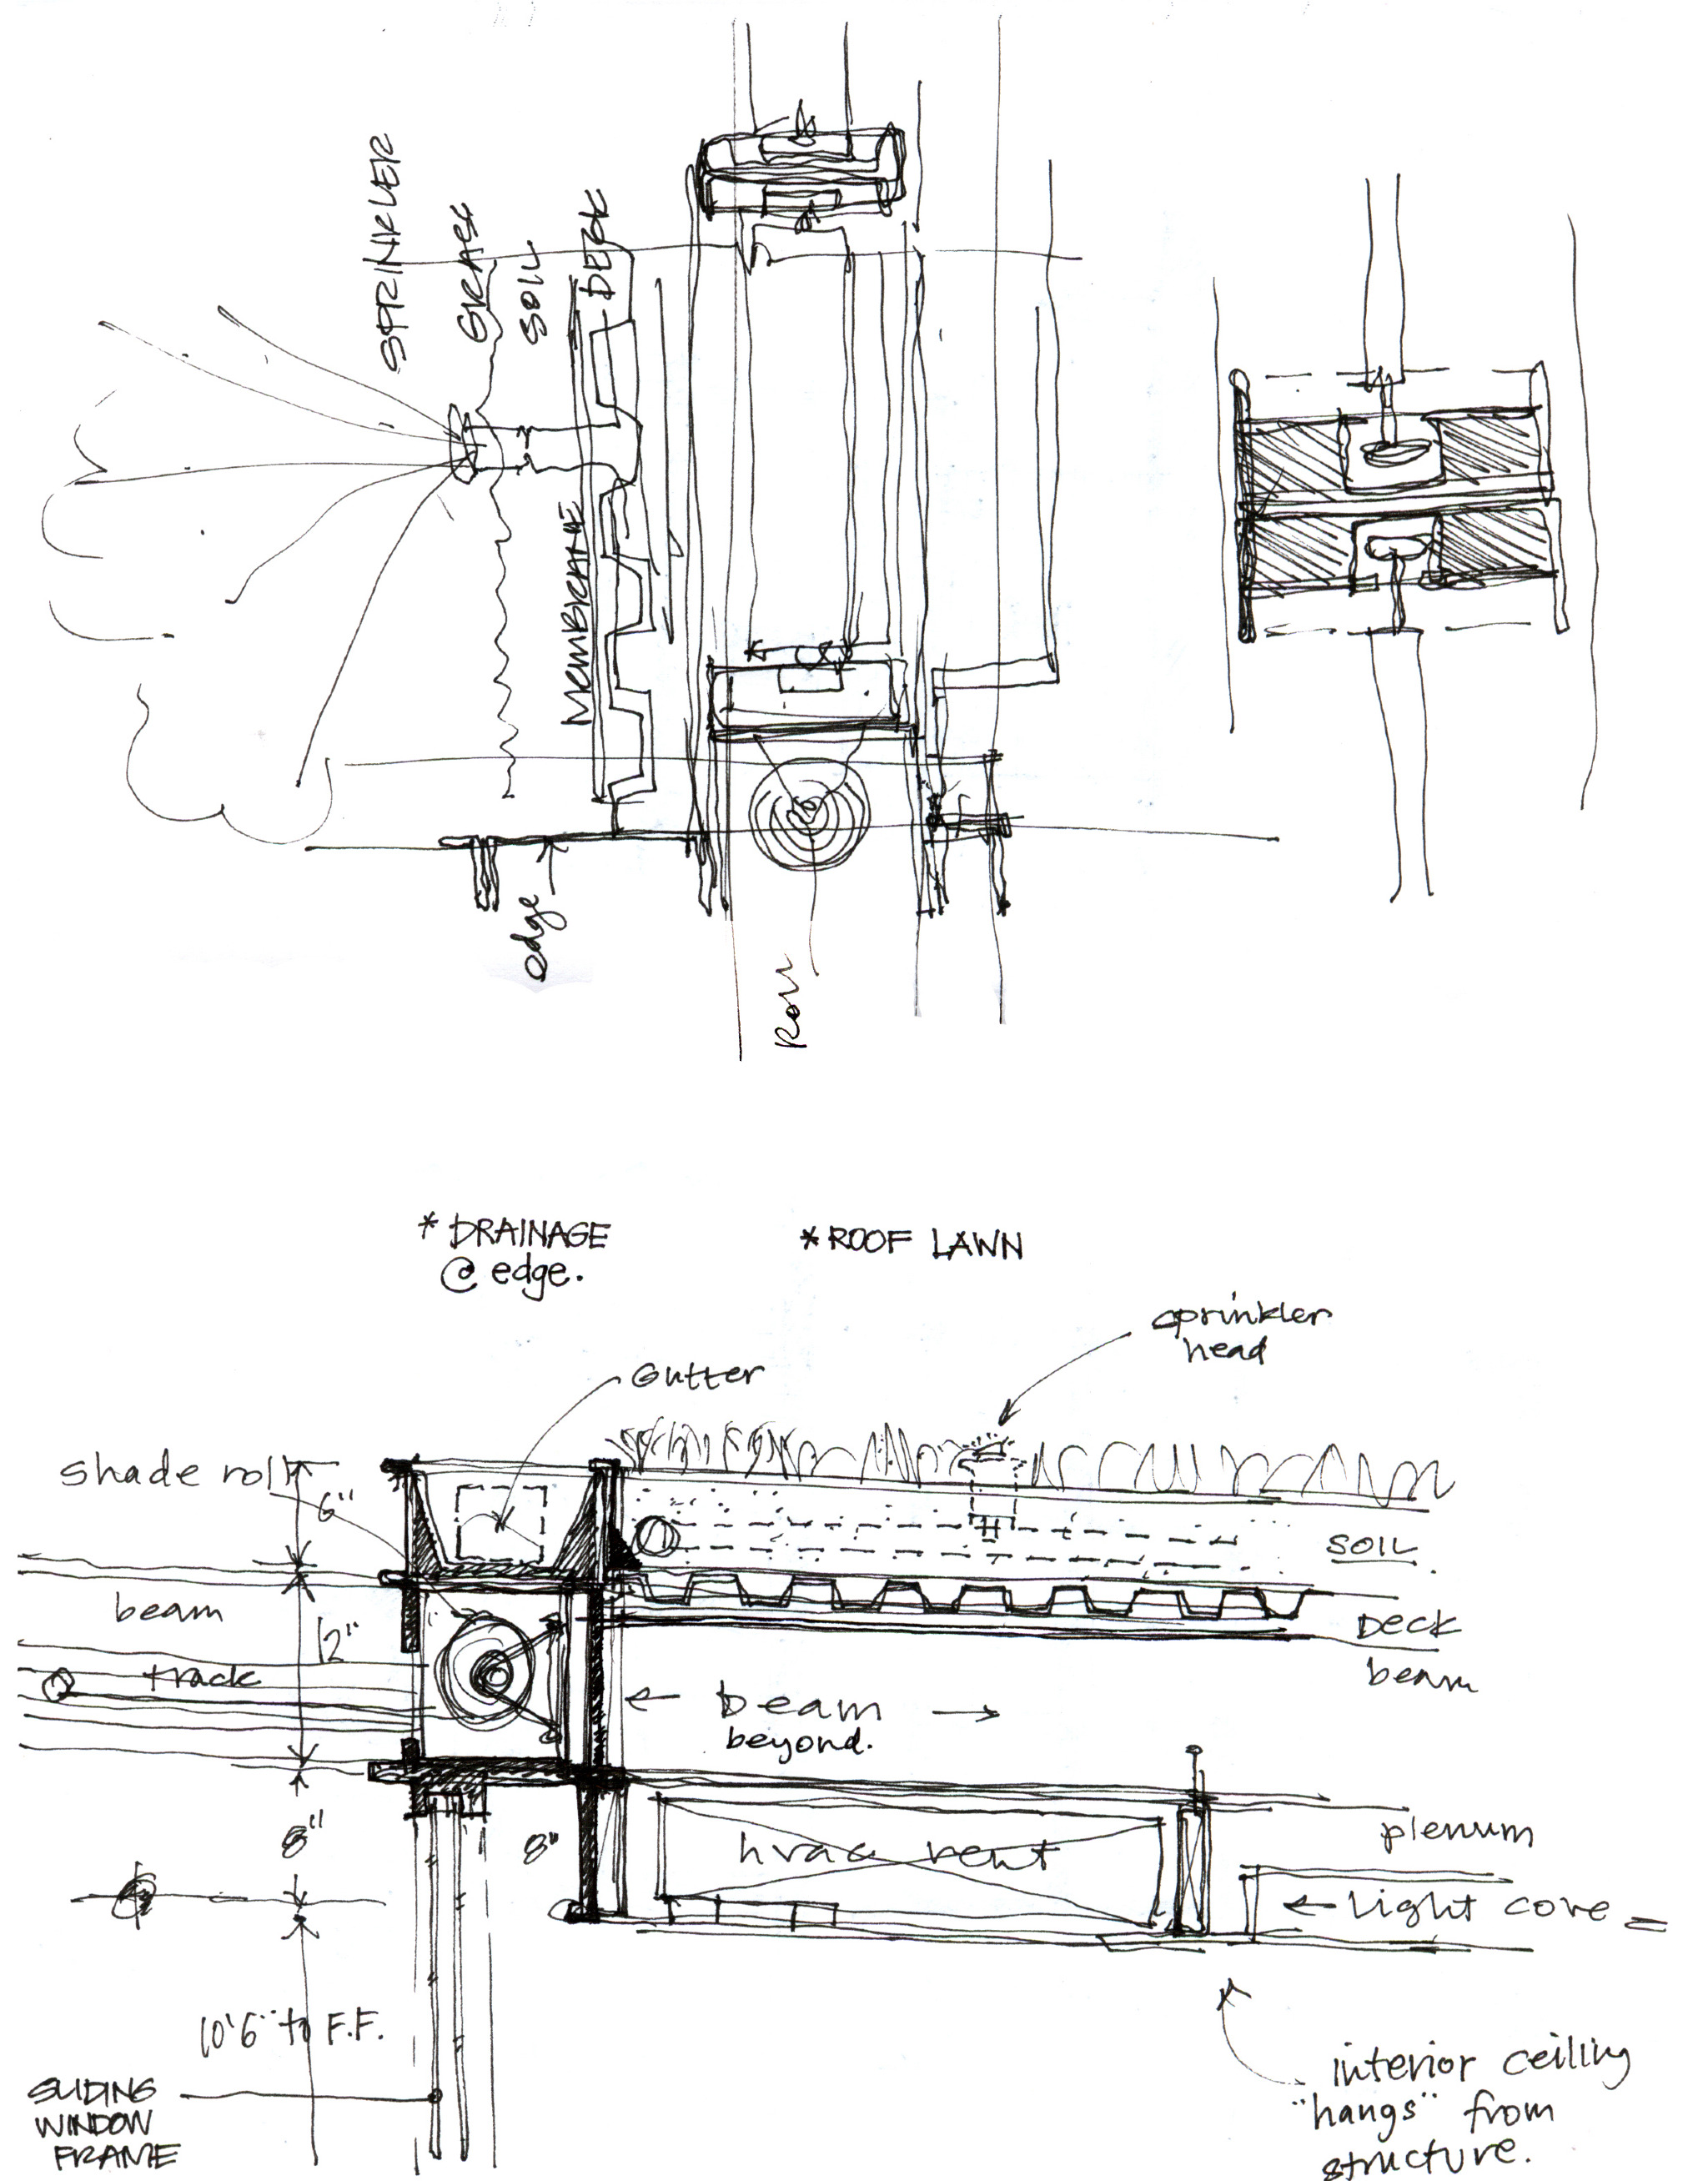 SPRINKLER
GRASS
SOIL
DECK
MEMBRANE
edge
Roll
* DRAINAGE
@ edge.
* ROOF LAWN
sprinkler
head
Gutter
shade roll
6"
SOIL
beam
12"
Deck
track
beam
← beam →
beyond.
8"
8"
hvac vent
plenum
← Light cove =
10'6" to F.F.
SLIDING
WINDOW
FRAME
interior ceiling
"hangs" from
structure.